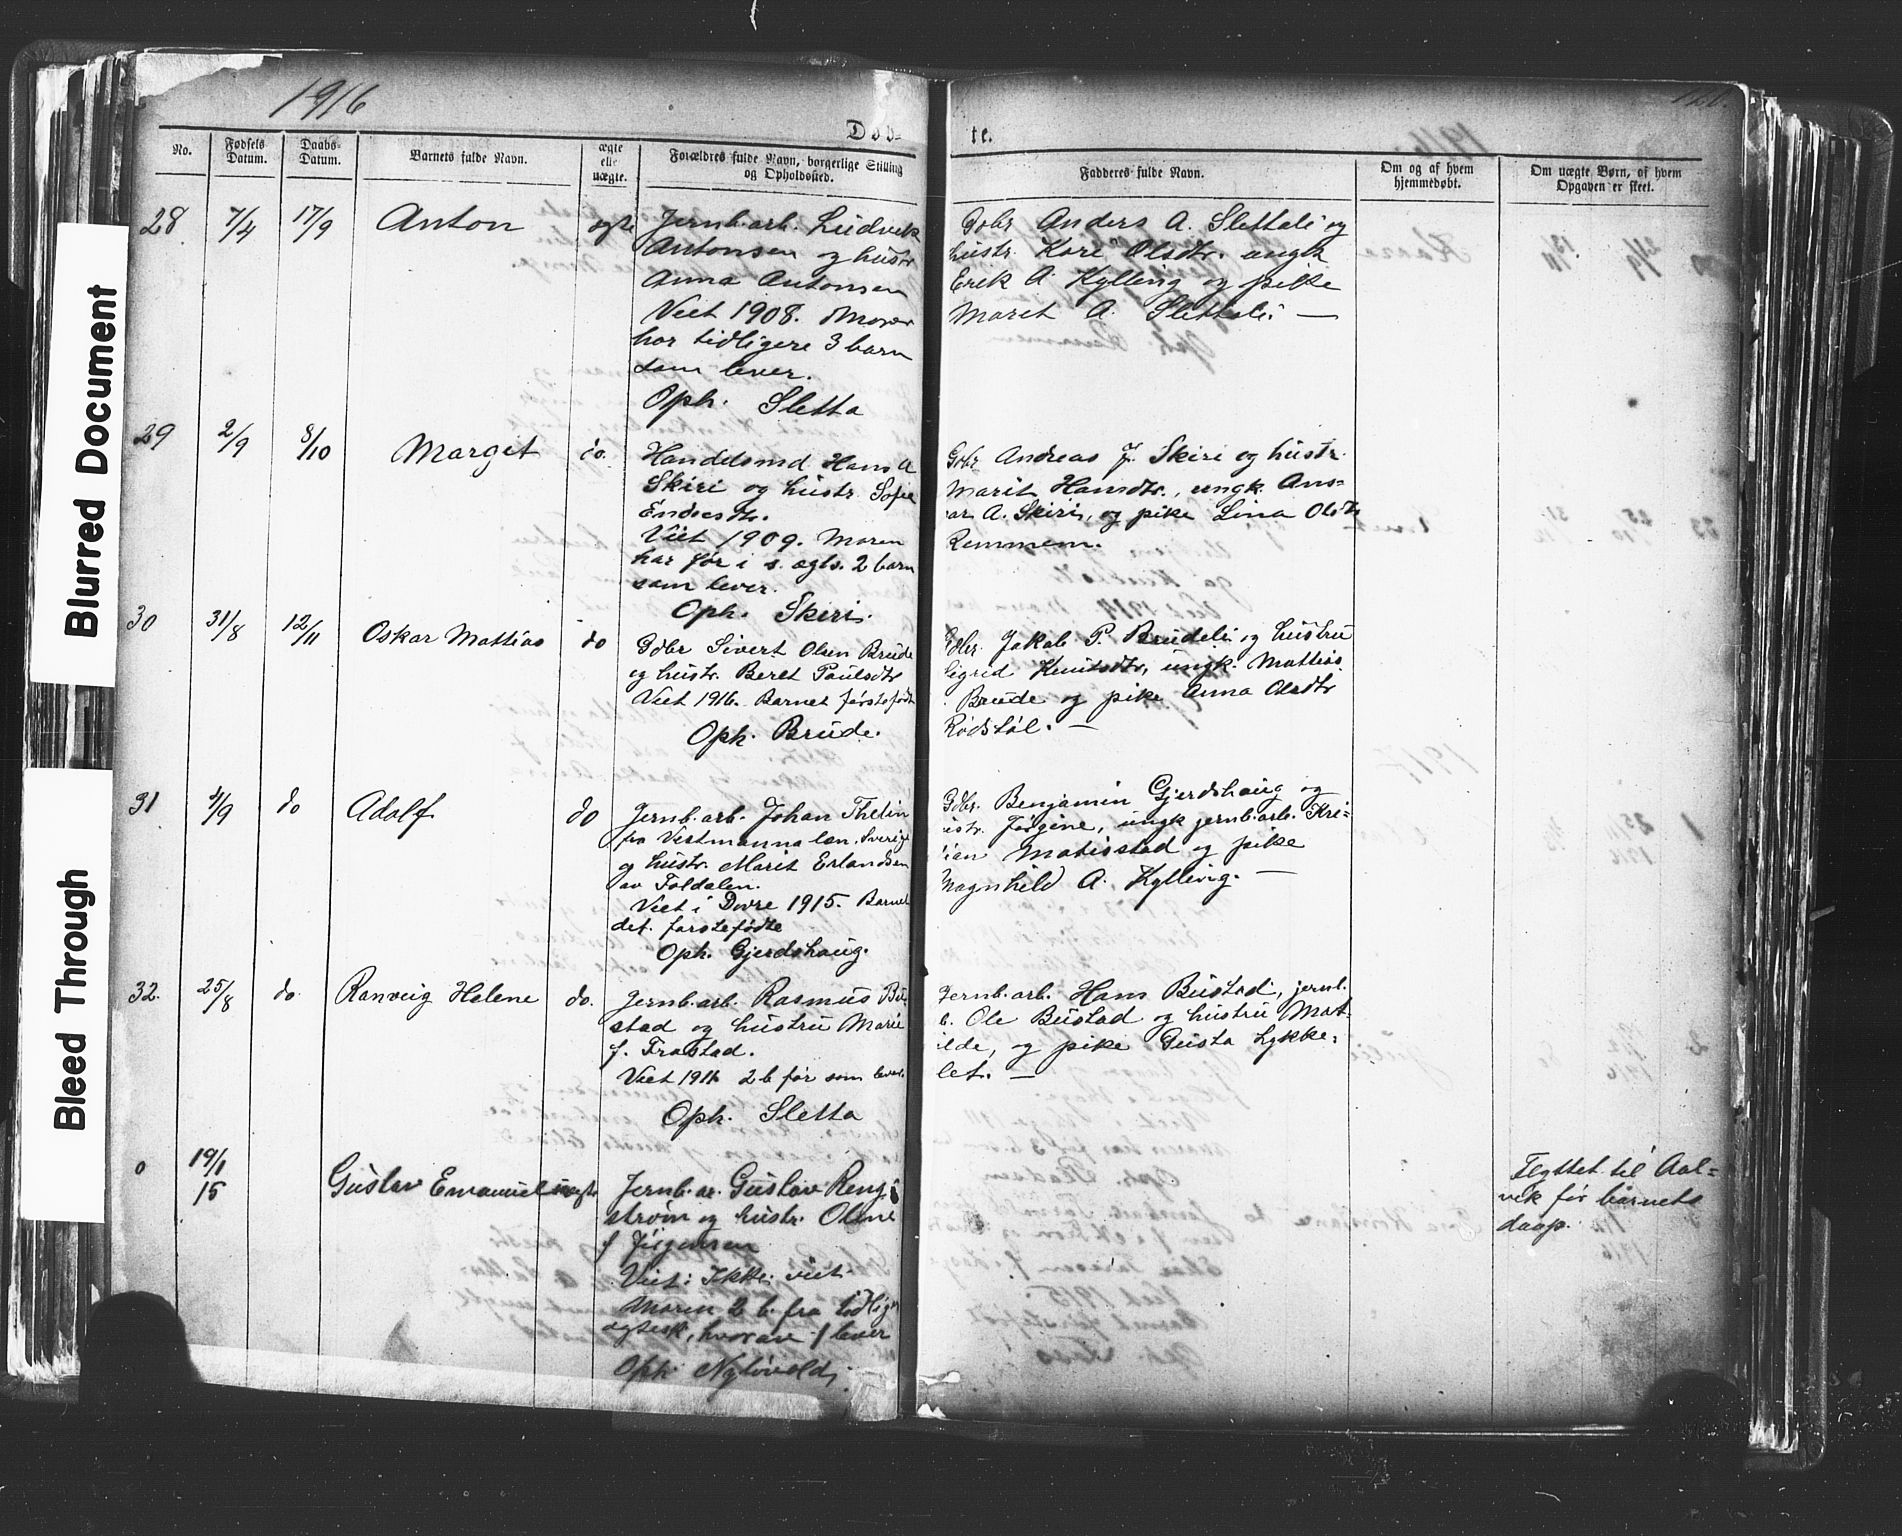 1916
Døb-
te.
No.
Fødsels Datum.
Daabs- Datum.
Barnets fulde Navn.
ægte elle uægte.
Forældres fulde Navn, borgerlige Stilling og Opholdssted.
Fadderes fulde Navn.
Om og af hvem hjemmedøbt.
Om uægte Børn, af hvem Opgaven er skeet.
28 7/4 17/9 Anton ægte
Jernb.arb. Ludvik
Antonsen og hustr.
Anna Antonsen
Viet 1908. Moren
har tidligere 3 barn
som lever.
Oph. Sletta
Gbr Anders A. Slettali og
hustr. Kari Olsdtr. ungk
Erik A. Kylling og pike
Marit A. Slettali. —
29 2/9 8/10 Margit do.
Handelsmd. Hans A
Skiri og hustr. Sofie
Endresdtr.
Viet 1909. Moren
har før i s. egts. 2 barn
som lever.
Oph. Skiri.
Gbr Andreas J. Skiri og hustr.
Marit Hansdtr., ungk. Ans-
ar A. Skiri, og pike Lina Olsdtr
Remmem.
30 31/8 12/11 Oskar Mattias do
Gdbr Sivert Olsen Brude
og hustr. Beret Paulsdtr
Viet 1916. Barnet førstefødt
Oph. Brude.
Gdbr. Jakob P. Brudeli og hustru
Sigrid Knutsdtr, ungk. Mattias
Brude og pike Anna Olsdtr
Rødstøl. —
31 4/9 do Adolf do
Jernb.arb. Johan Thelin
fra Vestmannalæn, Sverige
og hustr. Marit Erlandsen
av Foldalen.
Viet i Dovre 1915. Barnet
det førstefødte
Oph. Gjerdshaug.
Gdbr. Benjamin Gjerdshaug og
hustr. Jørgine, ungk jernb.arb. Kri-
stian Matisstad og pike
Magnhild A. Kylling. —
32. 25/8 do. Ranveig Helene do.
Jernb.arb. Rasmus Bu-
stad og hustru Marie
f. Frastad.
Viet 1911 2 b før som lever.
Oph. Sletta
Jernb.arb. Hans Bustad, jernb.
b. Ole Bustad og hustru Mat-
ilde, og pike Gusta Lykke-
let. —
0 19/1 15 Gustav Emanuel uægte
Jernb.ar. Gustav Reng-
strøm og hustr. Oline
f Jörgensen
Viet: Ikke viet
Moren 2 b. fra tidliger
egtesk, hvorav 1 lever
Oph. Nyløvold
Flyttet til Aal-
vik før barnets
daap.
Blurred Document
Bleed Through